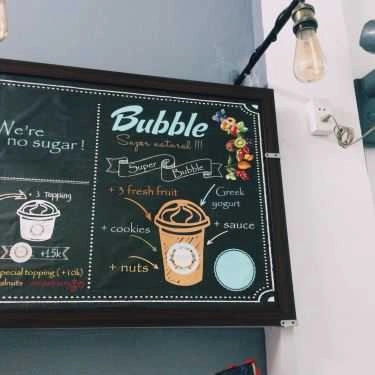 We're
no sugar!
+ 3 Topping
+15k
special topping (+10k)
Bubble
Super natural !!!
Super Bubble
+ 3 fresh fruit
Greek
yogurt
+ cookies
+ sauce
+ nuts